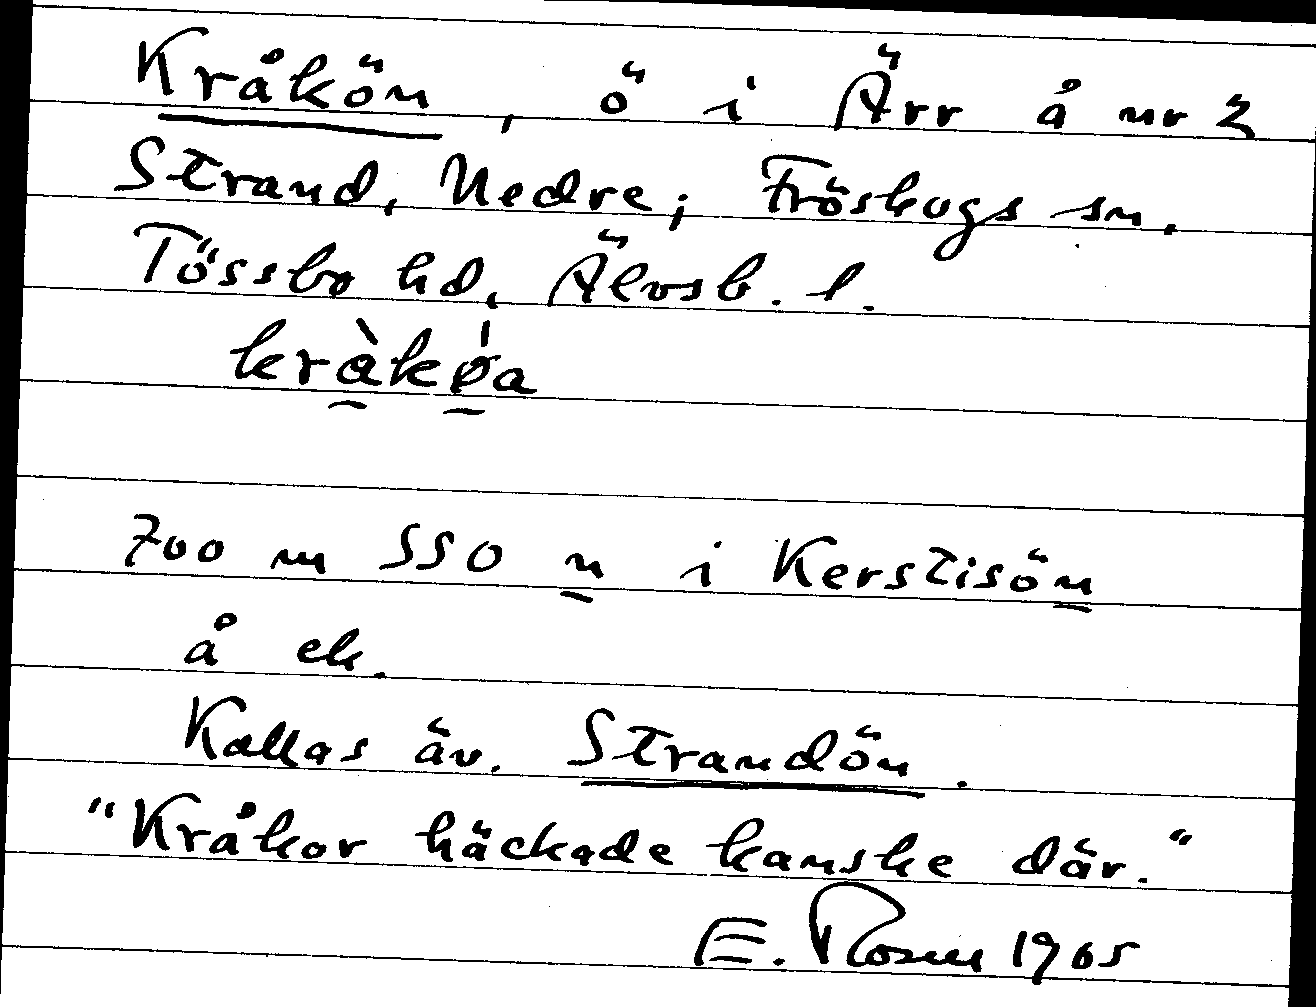 Kråkön, ö i Ärr å nr 2
Strand, Nedre; Fröskogs sn.
Tössbo hd, Älvsb. l.
kràkø̀a
700 m SSO n i Kerstisön
å ek.
Kallas äv. Strandön.
"Kråkor häckade kanske där."
E. Rosén 1965